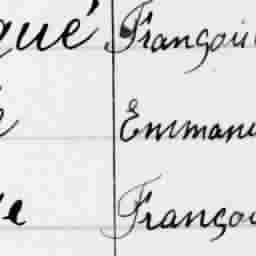 qué Françoi
Emmanu
e Françoi